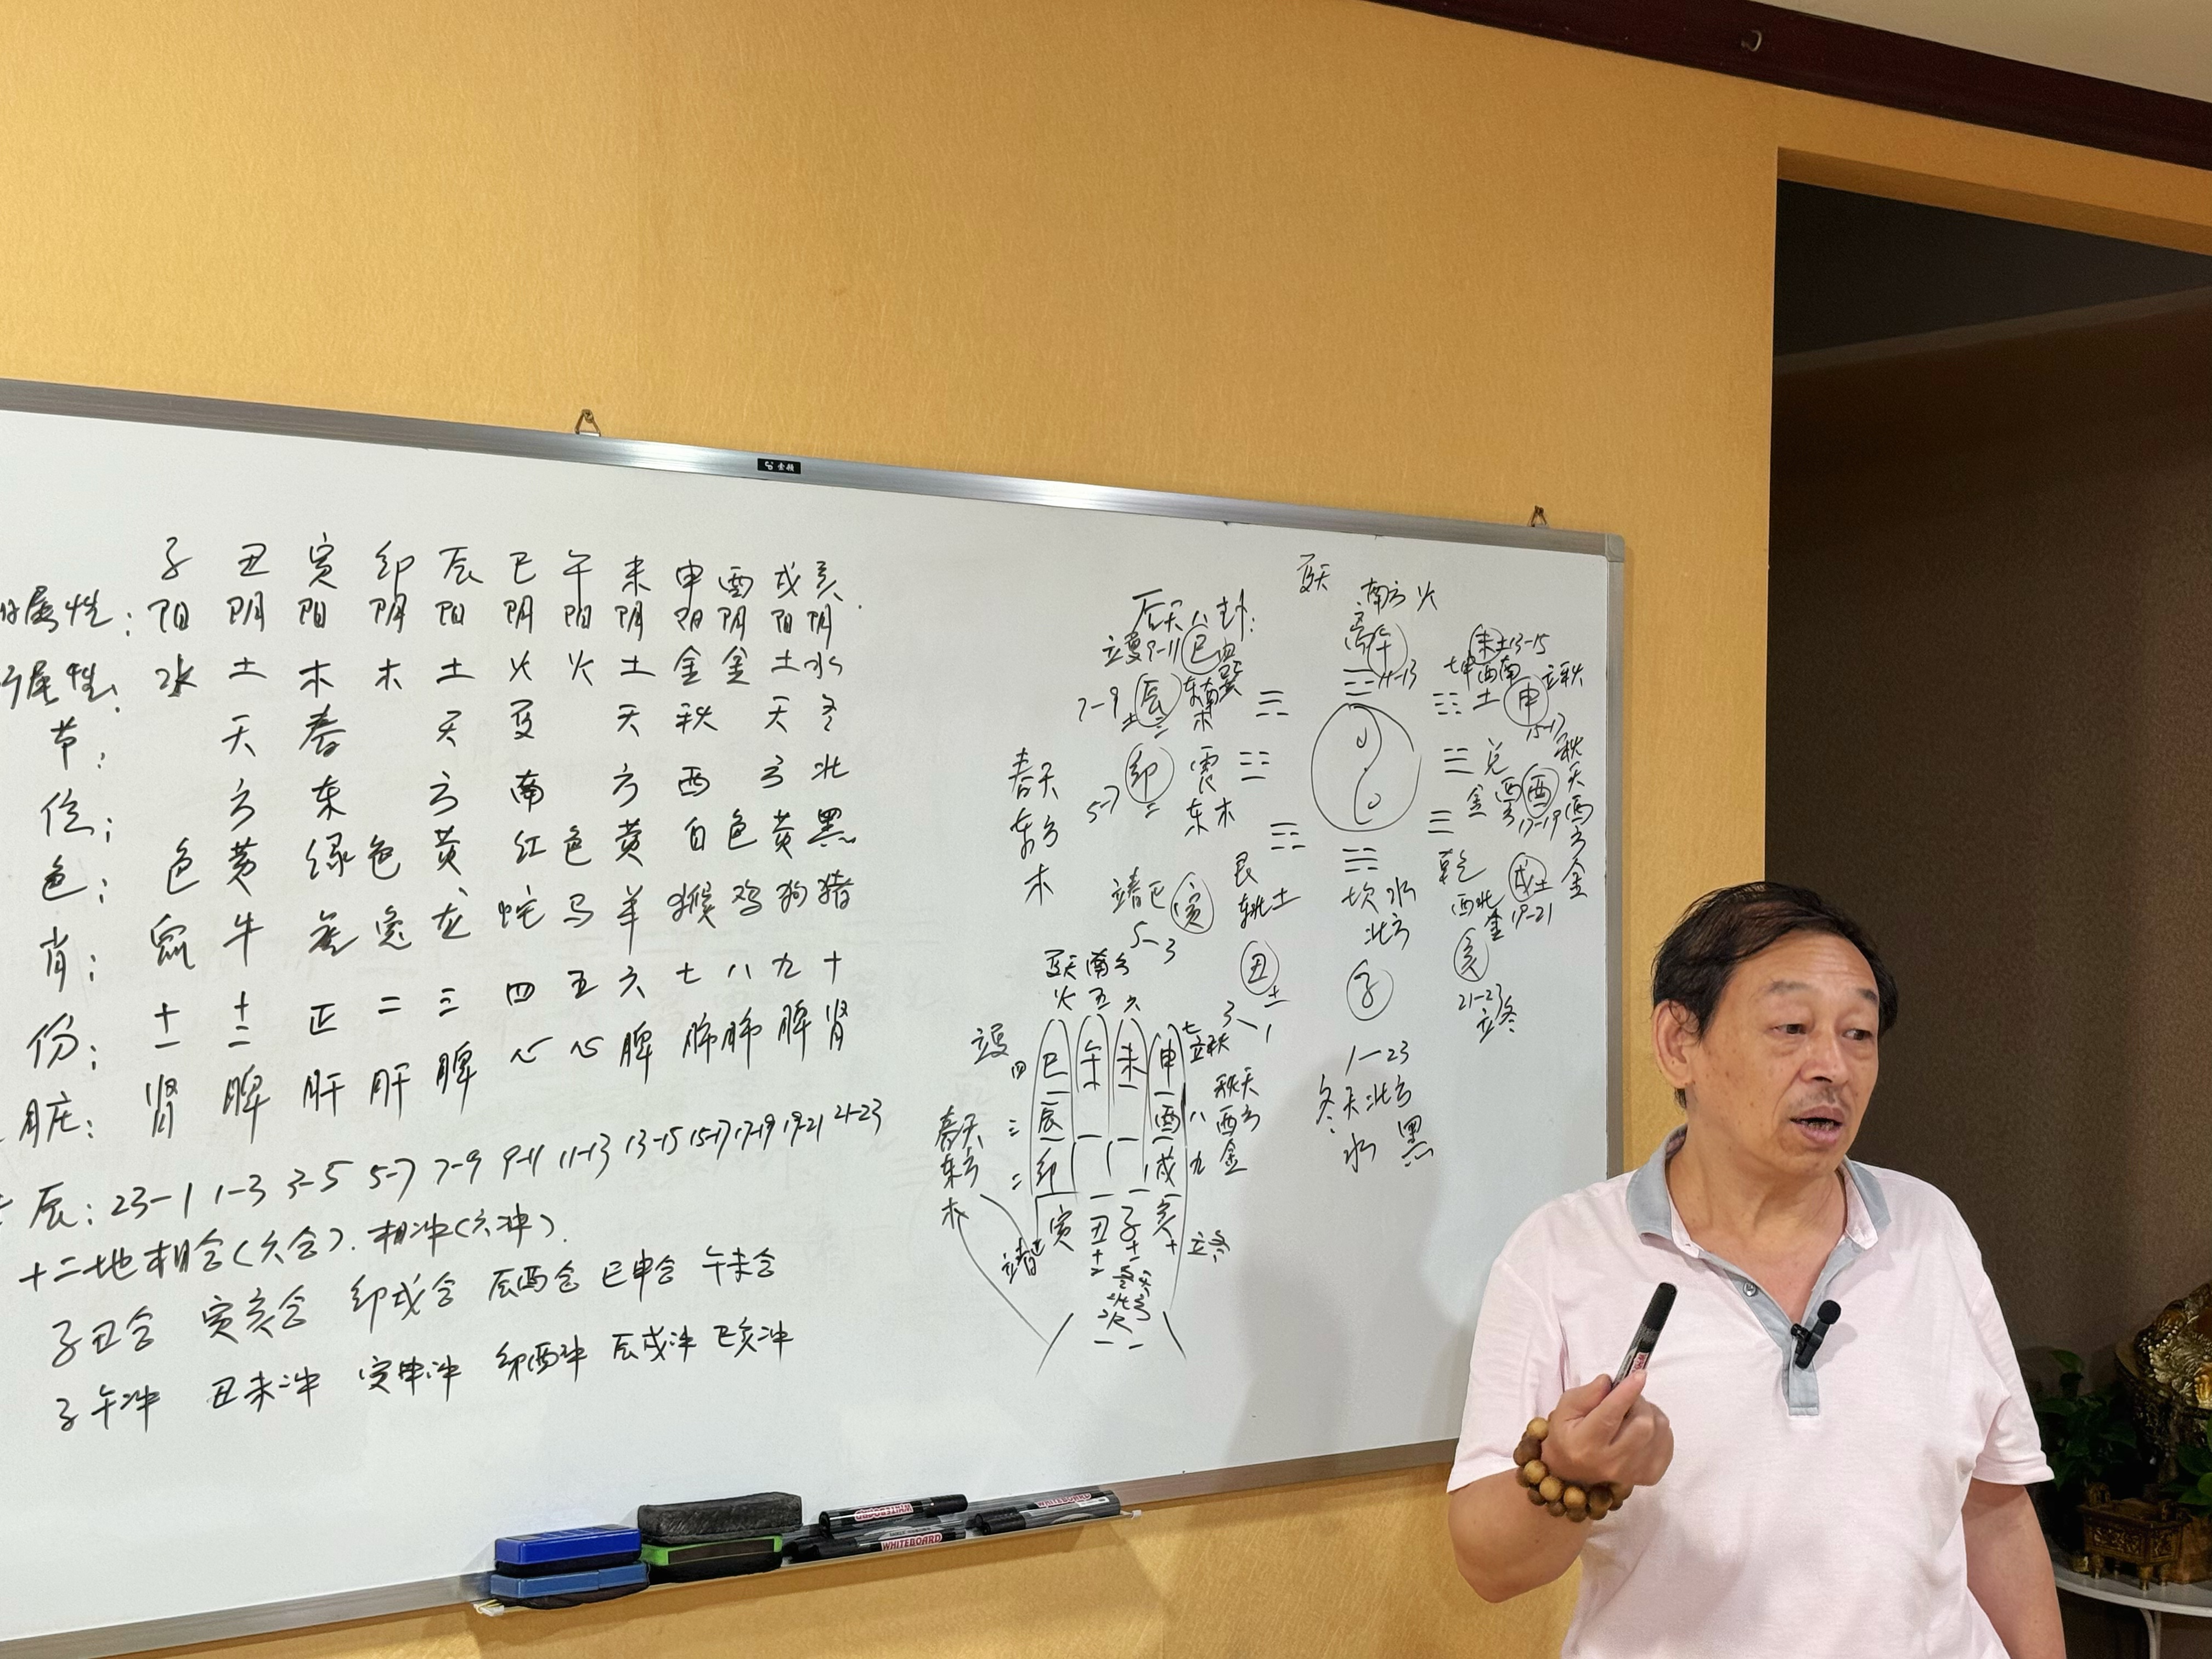 子 丑 寅 卯 辰 巳 午 未 申 酉 戌 亥
属性: 阳 阴 阳 阴 阳 阴 阳 阴 阳 阴 阳 阴
属性: 水 土 木 木 土 火 火 土 金 金 土 水
节: 天 春 天 夏 天 秋 天 冬
位: 方 东 方 南 方 西 方 北
色: 色 黄 绿 色 黄 红 色 黄 白 色 黄 黑
肖: 鼠 牛 虎 兔 龙 蛇 马 羊 猴 鸡 狗 猪
份: 十一 十二 正 二 三 四 五 六 七 八 九 十
脏: 肾 脾 肝 肝 脾 心 心 脾 肺 肺 脾 肾
辰: 23-1 1-3 3-5 5-7 7-9 9-11 11-13 13-15 15-17 17-19 19-21 21-23
十二地相合(六合). 相冲(六冲).
子丑合 寅亥合 卯戌合 辰酉合 巳申合 午未合
子午冲 丑未冲 寅申冲 卯酉冲 辰戌冲 巳亥冲
后天八卦:
夏天
南方火
离 午
11-13
立夏 9-11 巳 巽
7-9 辰 东南
土 木
未土 13-15
七申 西南 立秋
土 申
15-17
春天
东方
木
卯 震
5-7 二 东木
兑
金 西方 酉
17-19
秋天西方金
寅
5-3
艮
东北土
丑
土
3-1
坎水
北方
子
1-23
冬天北方
水 黑
乾
西北
金
戌土
19-21
亥
21-23
立冬
夏天南方
火 五 六
立夏 四 巳 午 未 申 七 立秋
三 辰 酉 八
二 卯 戌 九
寅 丑 子 亥
十二 十一 十
立春
立冬
春天
东方
木
秋天
西方
金
WHITEBOARD
WHITEBOARD
WHITEBOARD